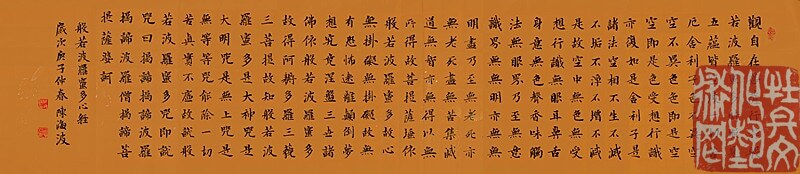 觀自在
若波羅
五蘊
厄舍利子
空不異色色即是空
空即是色受想行識
亦復如是舍利子是
諸法空相不生不滅
不垢不淨不增不減
是故空中無色無受
想行識無眼耳鼻舌
身意無色聲香味觸
法無眼界乃至無意
識界無無明亦無無
明盡乃至無老死亦
無老死盡無苦集滅
道無智亦無得以無
所得故菩提薩埵依
般若波羅蜜多故心
無掛礙無掛礙故無
有恐怖遠離顛倒夢
想究竟涅槃三世諸
佛依般若波羅蜜多
故得阿耨多羅三藐
三菩提故知般若波
羅蜜多是大神咒是
大明咒是無上咒是
無等等咒能除一切
苦真實不虛故說般
若波羅蜜多咒即說
咒曰揭諦揭諦波羅
揭諦波羅僧揭諦菩
提薩婆訶
般若波羅蜜多心經
歲次庚子仲春 陳海波
杜兵文
化藝
術網